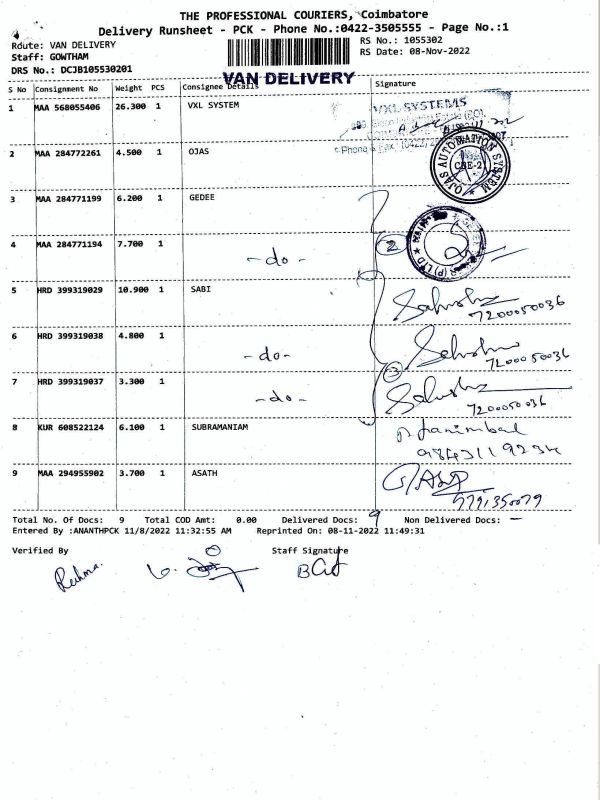 THE PROFESSIONAL COURIERS, Coimbatore
Delivery Runsheet - PCK - Phone No.:0422-3505555 - Page No.:1
Rdute: VAN DELIVERY
RS No.: 1055302
Staff: GOWTHAM
RS Date: 08-Nov-2022
DRS No.: DCJB105530201
VAN DELIVERY
S No Consignment No Weight PCS Consignee Details Signature
1 MAA 568055406 26.300 1 VXL SYSTEM
VXL SYSTEMS
2 MAA 284772261 4.500 1 OJAS
OJAS AUTOMATION SYSTEM
CBE-2
3 MAA 284771199 6.200 1 GEDEE
4 MAA 284771194 7.700 1 -do- 2
(P) LTD
5 HRD 399319029 10.900 1 SABI
7200050036
6 HRD 399319038 4.800 1 -do-
7200050036
7 HRD 399319037 3.300 1 -do- 3
7200050036
8 KUR 608522124 6.100 1 SUBRAMANIAM
9843119234
9 MAA 294955902 3.700 1 ASATH
Total No. Of Docs: 9 Total COD Amt: 0.00 Delivered Docs: 9 Non Delivered Docs: -
Entered By :ANANTHPCK 11/8/2022 11:32:55 AM Reprinted On: 08-11-2022 11:49:31
Verified By Staff Signature